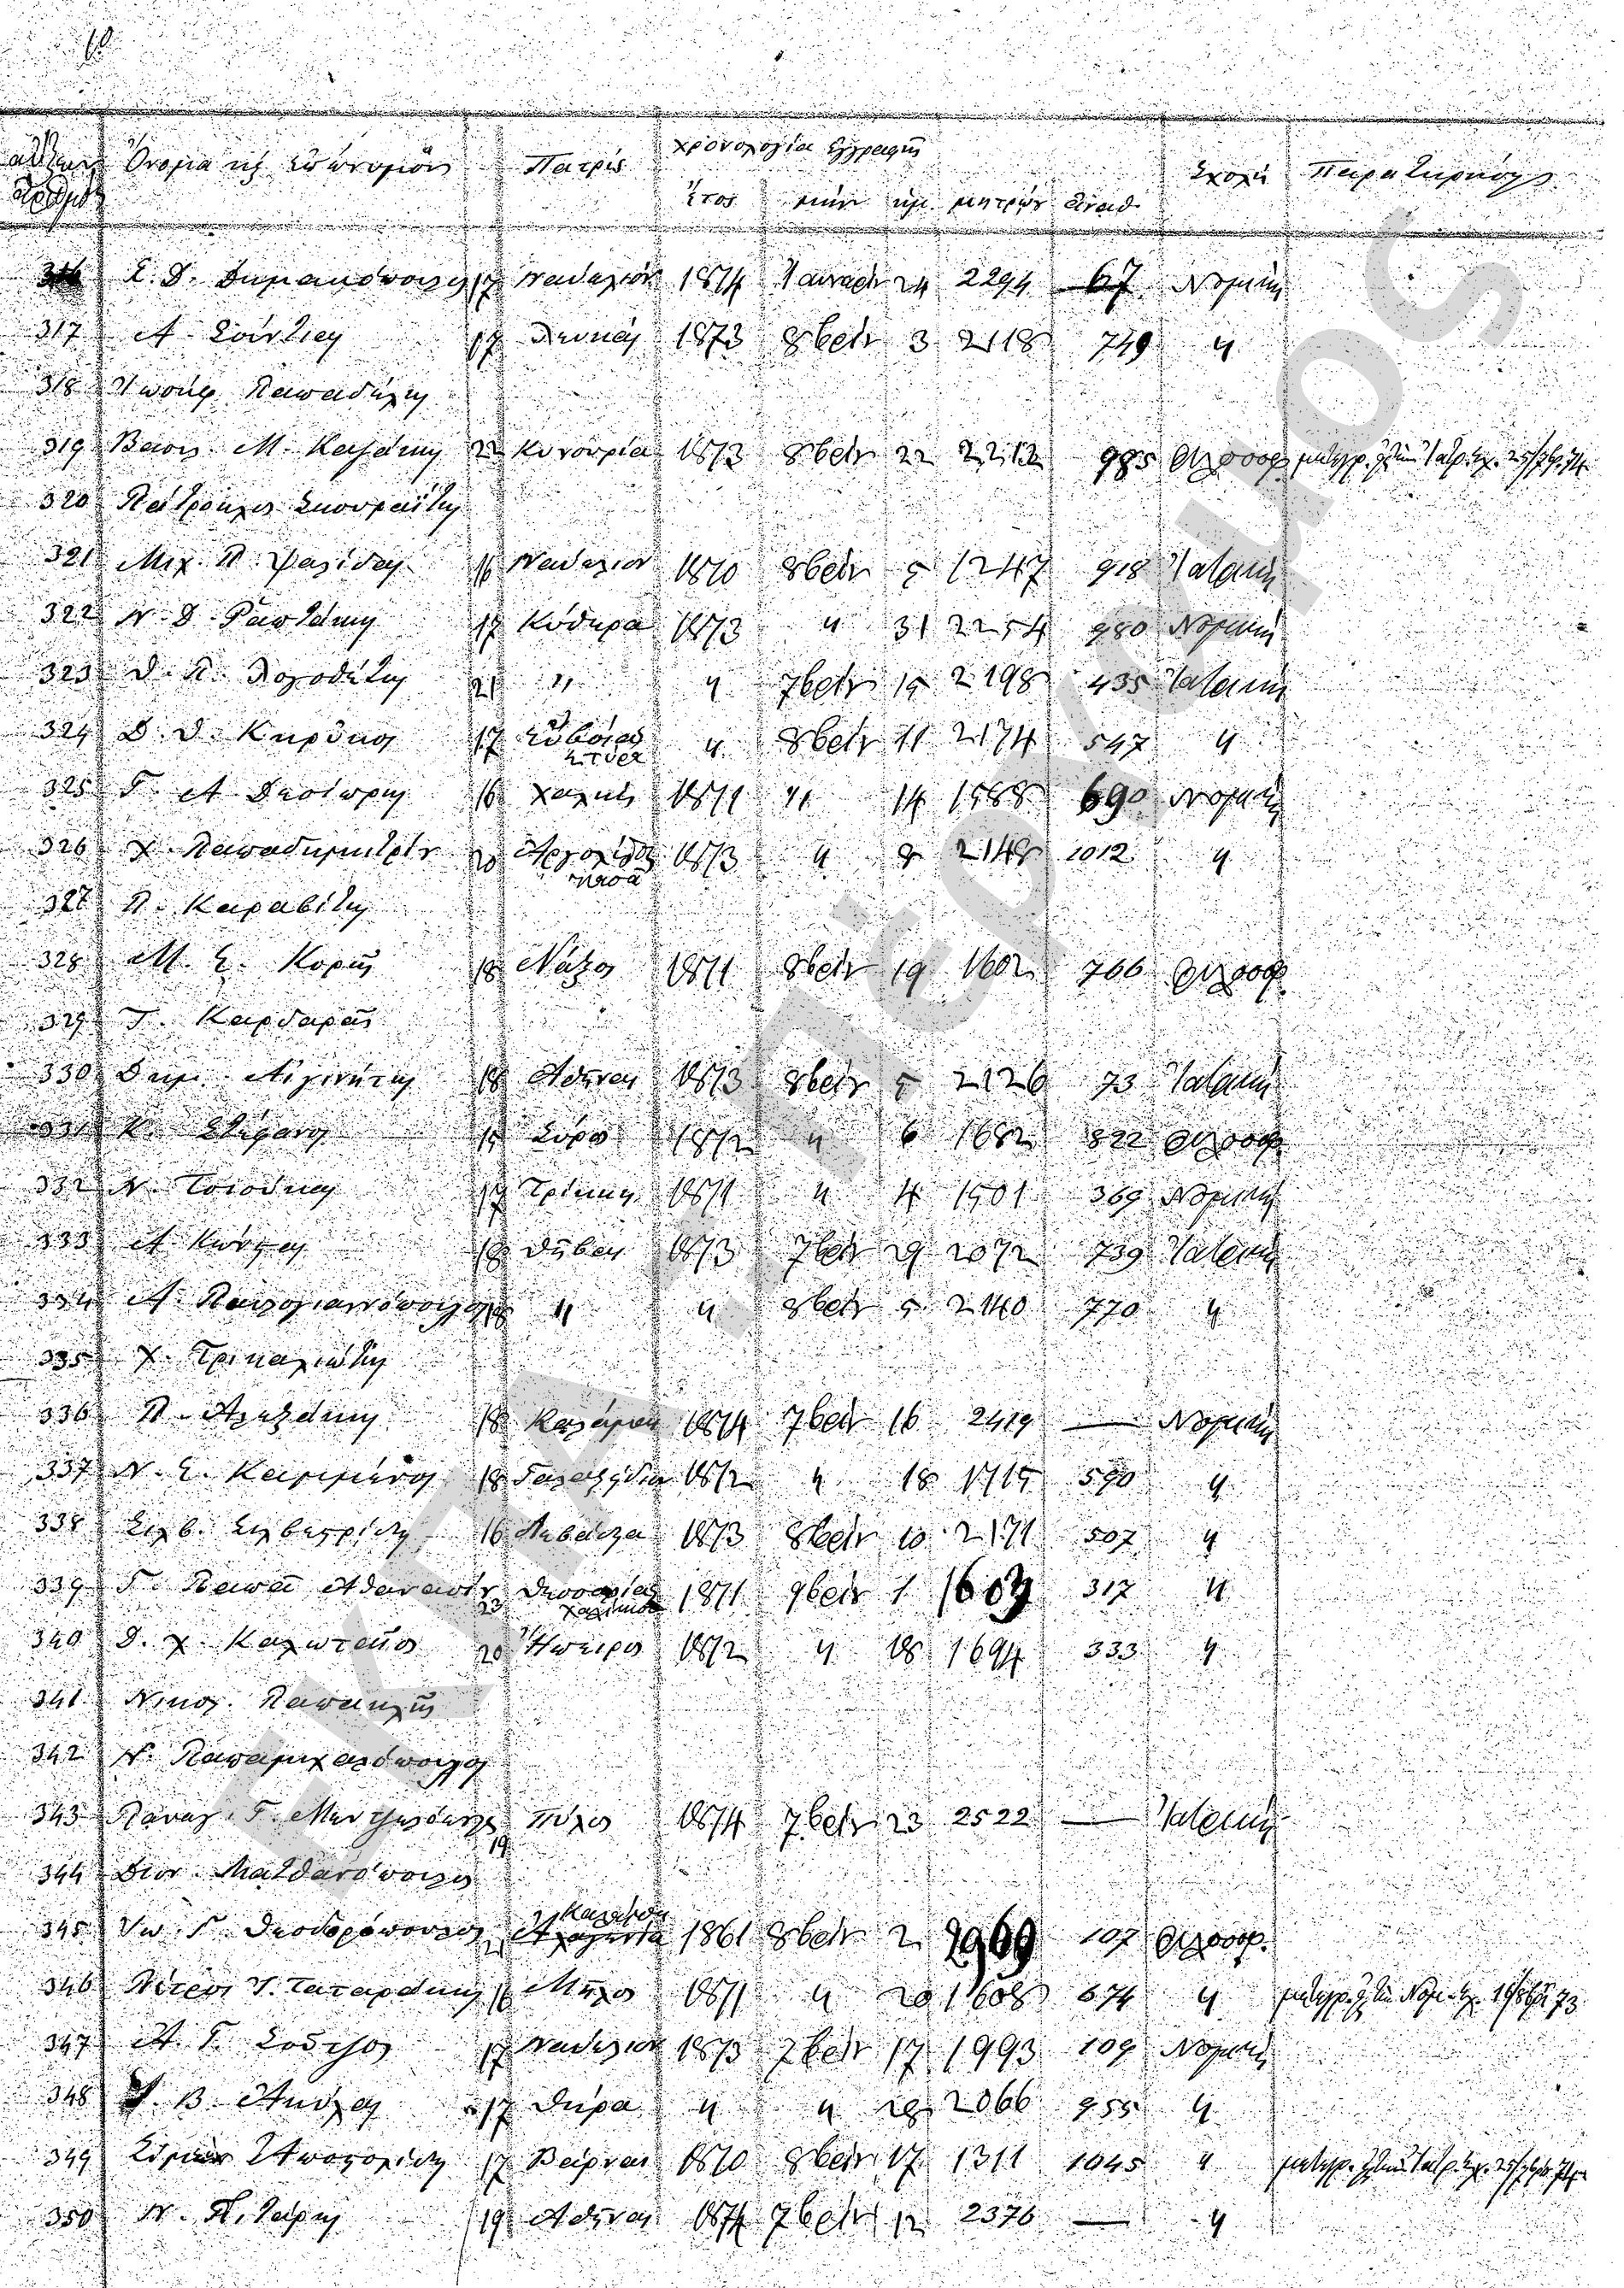 10
αὔξων ἀριθμός Ὄνομα κ ἐπώνυμον Πατρίς χρονολογία ἐγγραφῆς Σχολή Παρατηρήσεις
ἔτος μήν ἡμ. μητρών
316 Σ. Δ. Δημακόπουλος 17 Ναύπλιον 1874 Ἰανουάρ 24 2294 67 Νομική
317 Α 17 Λευκάς 1873 8βρίου 3 2118 749 "
318 Ἰωσήφ Παπαδέλης
319 Βασιλ Μ. Καζάκης 22 Κυνουρία 1873 8βρίου 22 2212 985 Φιλοσοφ μετεγρ. Ἰατρ. Σχ. 25/7βρ. 74
320 Πάτροκλος Σκουμπαίτης
321 Μιχ. Π. Ψαλίδας 16 Ναύπλιον 1870 8βρίου 5 1247 918 Ἰατρική
322 Ν. Δ. Ραπτάκης 17 Κύθηρα 1873 " 31 2254 980 Νομική
323 Θ. Π. Λογοθέτης 21 " " 7βρίου 15 2198 435 Ἰατρική
324 Δ. Θ. Κηρύκος 17 Εὐβοίας Στύρα " 8βρίου 11 2174 547 "
325 Γ. Α 16 Χαλκίς 1871 " 14 1588 690 Νομική
326 Χ. Παπαδημητρίου 20 Ἀργολίδος 1873 " 8 2148 1012 "
327 Π. Καραβίτης
328 Μ. Σ. Κορῆς 18 Νάξος 1871 8βρίου 19 1602 766 Φιλοσοφ
329 Γ. Καρδαρᾶς
330 Δημ. Αἰγινήτης 18 Ἀθῆναι 1873 8βρίου 5 2126 73 Ἰατρική
331 Κ. Στέφανος 15 Σύρος 1872 " 6 1682 822 Φιλοσοφ
332 Ν. Τσιούκας 17 Τρίκκης 1871 " 4 1501 369 Νομική
333 Α Κώνστας 18 Θῆβαι 1873 7βρίου 29 2072 739 Ἰατρική
334 Α. Παπαγιαννόπουλος 18 " " 8βρίου 5 2140 770 "
335 Χ. Τρικαλιώτης
336 Π. Ἀλεξάκης 18 Καλάμαι 1874 7βρίου 16 2419 — Νομική
337 Ν. Σ. Καμμένος 18 Γαλαξείδιον 1872 " 18 1715 590 "
338 Σιλβ. Σιλβεστρίδης 16 Λεβάδεια 1873 8βρίου 10 2171 507 "
339 Γ. Παπᾶ Ἀθανασίου 23 Θεσσαλίας 1871 9βρίου 1 1603 317 "
340 Δ. Χ. Καλωταῖος 20 Ἤπειρος 1872 " 18 1694 333 "
341 Νικολ. Παπακλῆς
342 Ν. Παπαμιχαλόπουλος
343 Παναγ. Γ. Μεντζελόπουλος 19 Πύλος 1874 7βρίου 23 2522 — Ἰατρική
344 Διον. Ματθανόπουλος
345 Ἰω Γ. Θεοδωρόπουλος 21 Καλάμαι 1861 8βρίου 2 2969 107 Φιλοσοφ.
346 Πέτρος Ι. Ταταράκης 16 Μῆλος 1871 " 20 1608 674 " μετεγρ. Νομ. Σχ. 18/8βρ 73
347 Α. Γ. Σοῦτζος 17 Ναύπλιον 1873 7βρίου 17 1993 109 Νομική
348 Β. Ἀκύλας 17 Θήρα " " 28 2066 955 "
349 Συμεὼν Ἀποστολίδης 17 Βάρναι 1870 8βρίου 17 1311 1045 " μετεγρ. Ἰατρ. Σχ. 25/7βρ. 74
350 Ν. 19 Ἀθῆναι 1874 7βρίου 12 2376 — "
ΕΚΠΑ - Πέργαμος